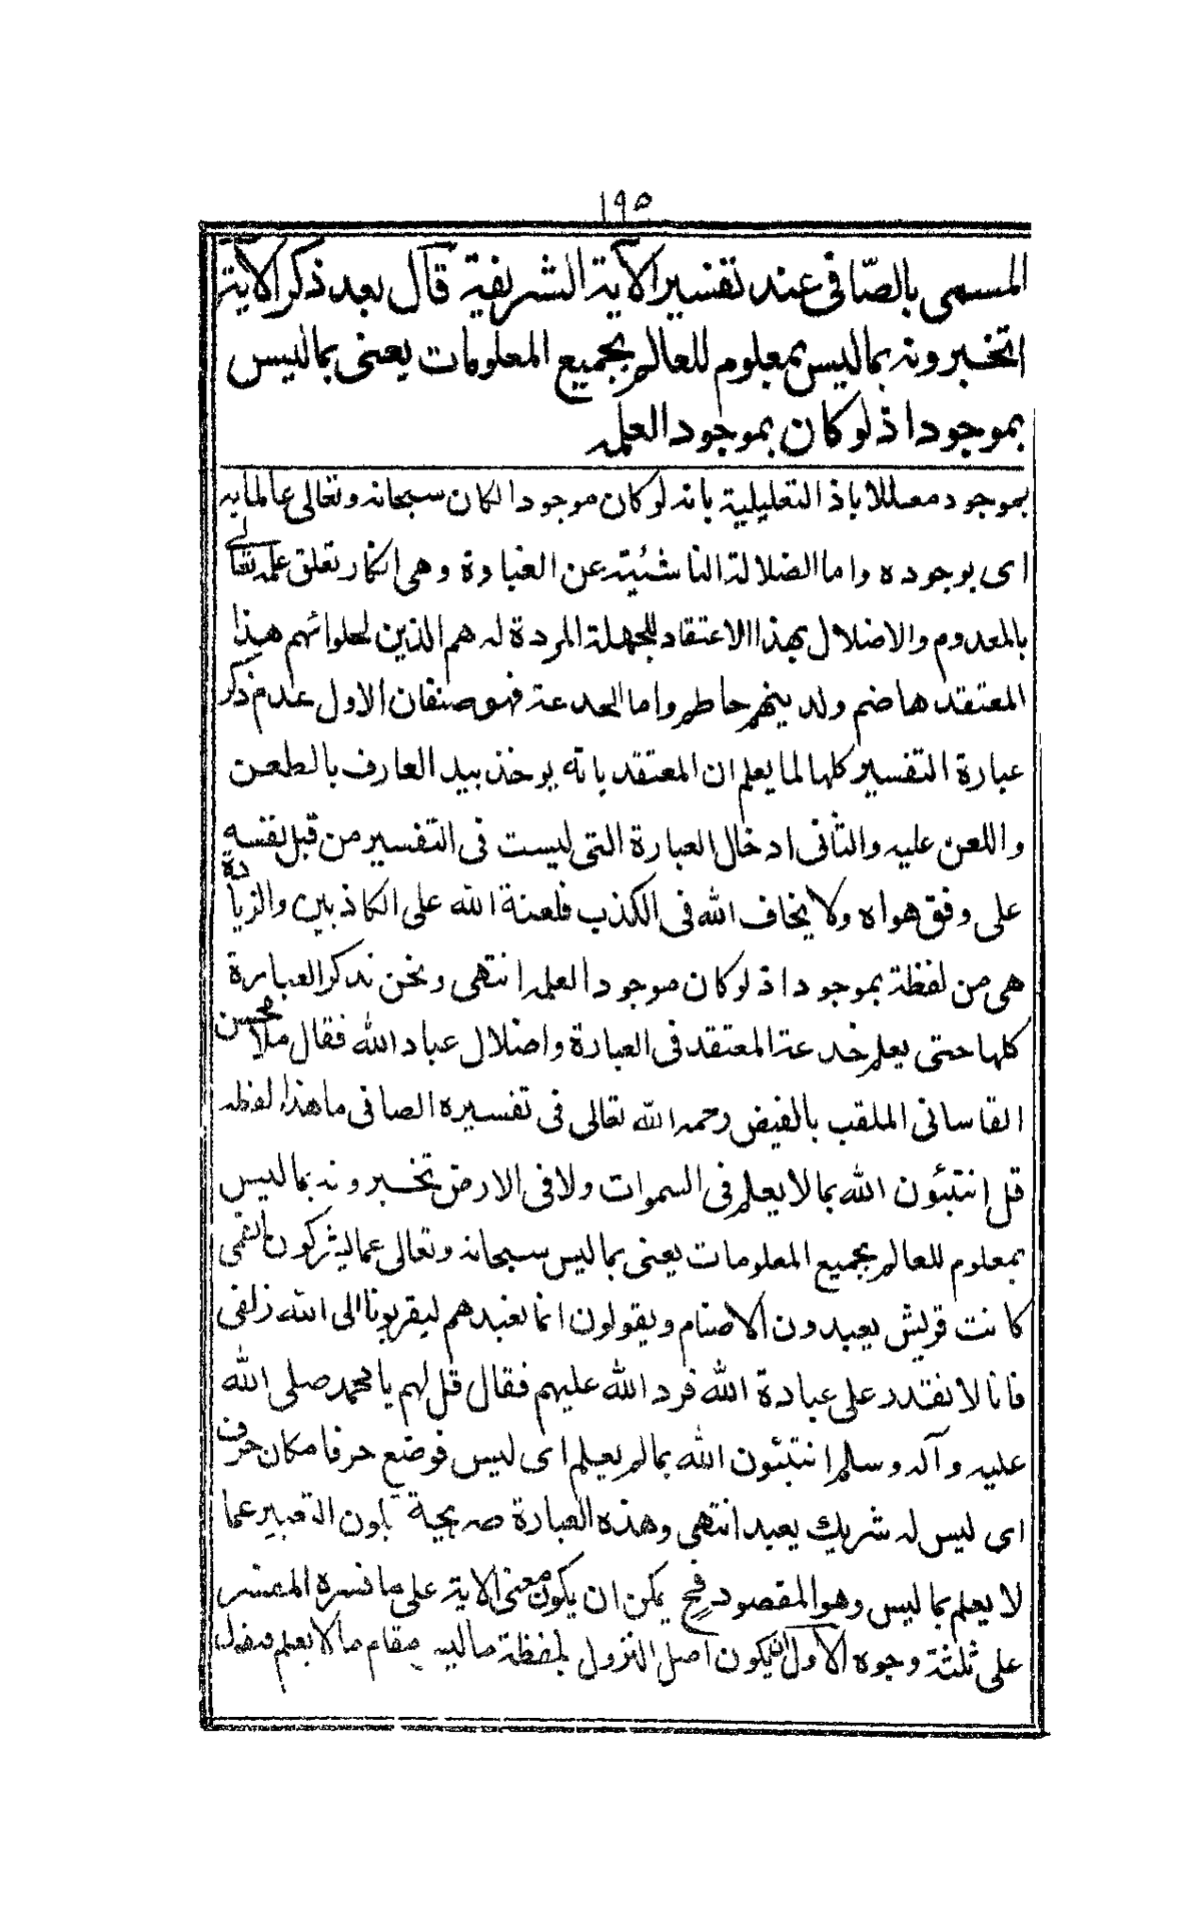 ١٩٥
المسمى بالصّافى عند تفسير الآية الشريفة قال بعد ذكر الآية
اتخبرونه بما ليس بمعلوم للعالم بجميع المعلومات يعنى بما ليس
بموجود اذ لو كان بموجود العلمه
بموجود معللا باذ التعليلية بانه لو كان موجودا لكان سبحانه وتعالى عالما به
اى بوجوده واما الضلالة الناشئية عن الغباوة وهى انكار تعلق علمه تعالى
بالمعدوم والاضلال بهذا الاعتقاد للجهلة المردة له هم الذين لحلوائهم هذا
المعتقد هاضم ولد ينهم حاطم واما الخدعة فهو صنفان الاول عدم ذكر
عبارة التفسير كلها لما يعلم ان المعتقد بانه يوخذ بيد العارف بالطعن
واللعن عليه والثانى ادخال العبارة التى ليست فى التفسير من قبل نفسه
على وفق هواه ولا يخاف الله فى الكذب فلعنة الله على الكاذبين والزيادة
هى من لفظة بموجود اذ لو كان موجود العلمه انتهى ونحن نذكر العبارة
كلها حتى يعلم خدعة المعتقد فى العبارة واضلال عباد الله فقال ملا محسن
القاسانى الملقب بالفيض رحمه الله تعالى فى تفسيره الصافى ما هذا لفظه
قل انتبئون الله بما لا يعلم فى السموات ولا فى الارض تخبرونه بما ليس
بمعلوم للعالم بجميع المعلومات يعنى بما ليس سبحانه وتعالى عما يشركون القمى
كانت قريش يعبدون الاصنام ويقولون انما نعبدهم ليقربونا الى الله زلفى
فانا لا نقدر على عبادة الله فرد الله عليهم فقال قل لهم يا محمد صلى الله
عليه وآله وسلم انتبئون الله بما لم يعلم اى ليس فوضع حرفا مكان حرف
اى ليس له شريك يعبد انتهى وهذه العبارة صريحة بلون التعبير عما
لا يعلم بما ليس وهو المقصود فح يمكن ان يكون معنى الاية على ما فسره المفسر
على ثلثة وجوه الاول ان يكون اصل النزول لفظة ما ليس مقام ما لا يعلم